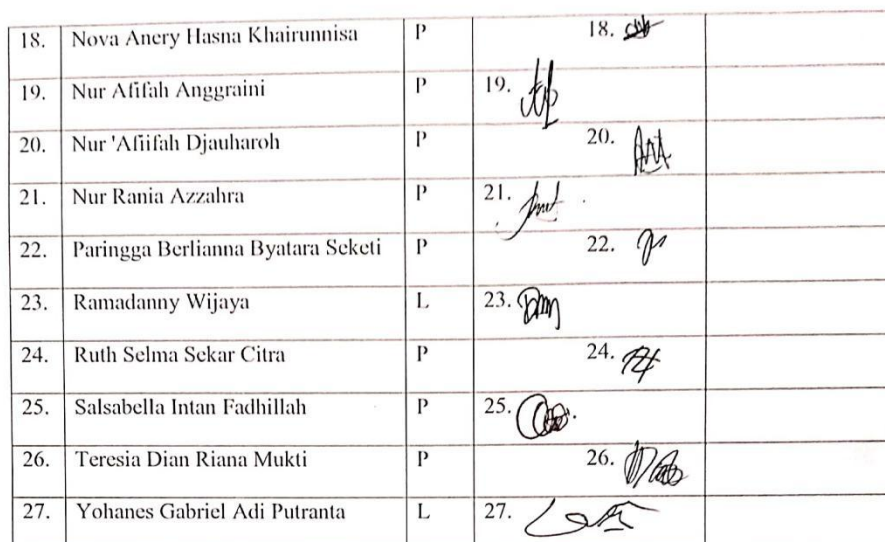 18. Nova Anery Hasna Khairunnisa P 18.
19. Nur Afifah Anggraini P 19.
20. Nur 'Afiifah Djauharoh P 20.
21. Nur Rania Azzahra P 21.
22. Paringga Berlianna Byatara Seketi P 22.
23. Ramadanny Wijaya L 23.
24. Ruth Selma Sekar Citra P 24.
25. Salsabella Intan Fadhillah P 25.
26. Teresia Dian Riana Mukti P 26.
27. Yohanes Gabriel Adi Putranta L 27.